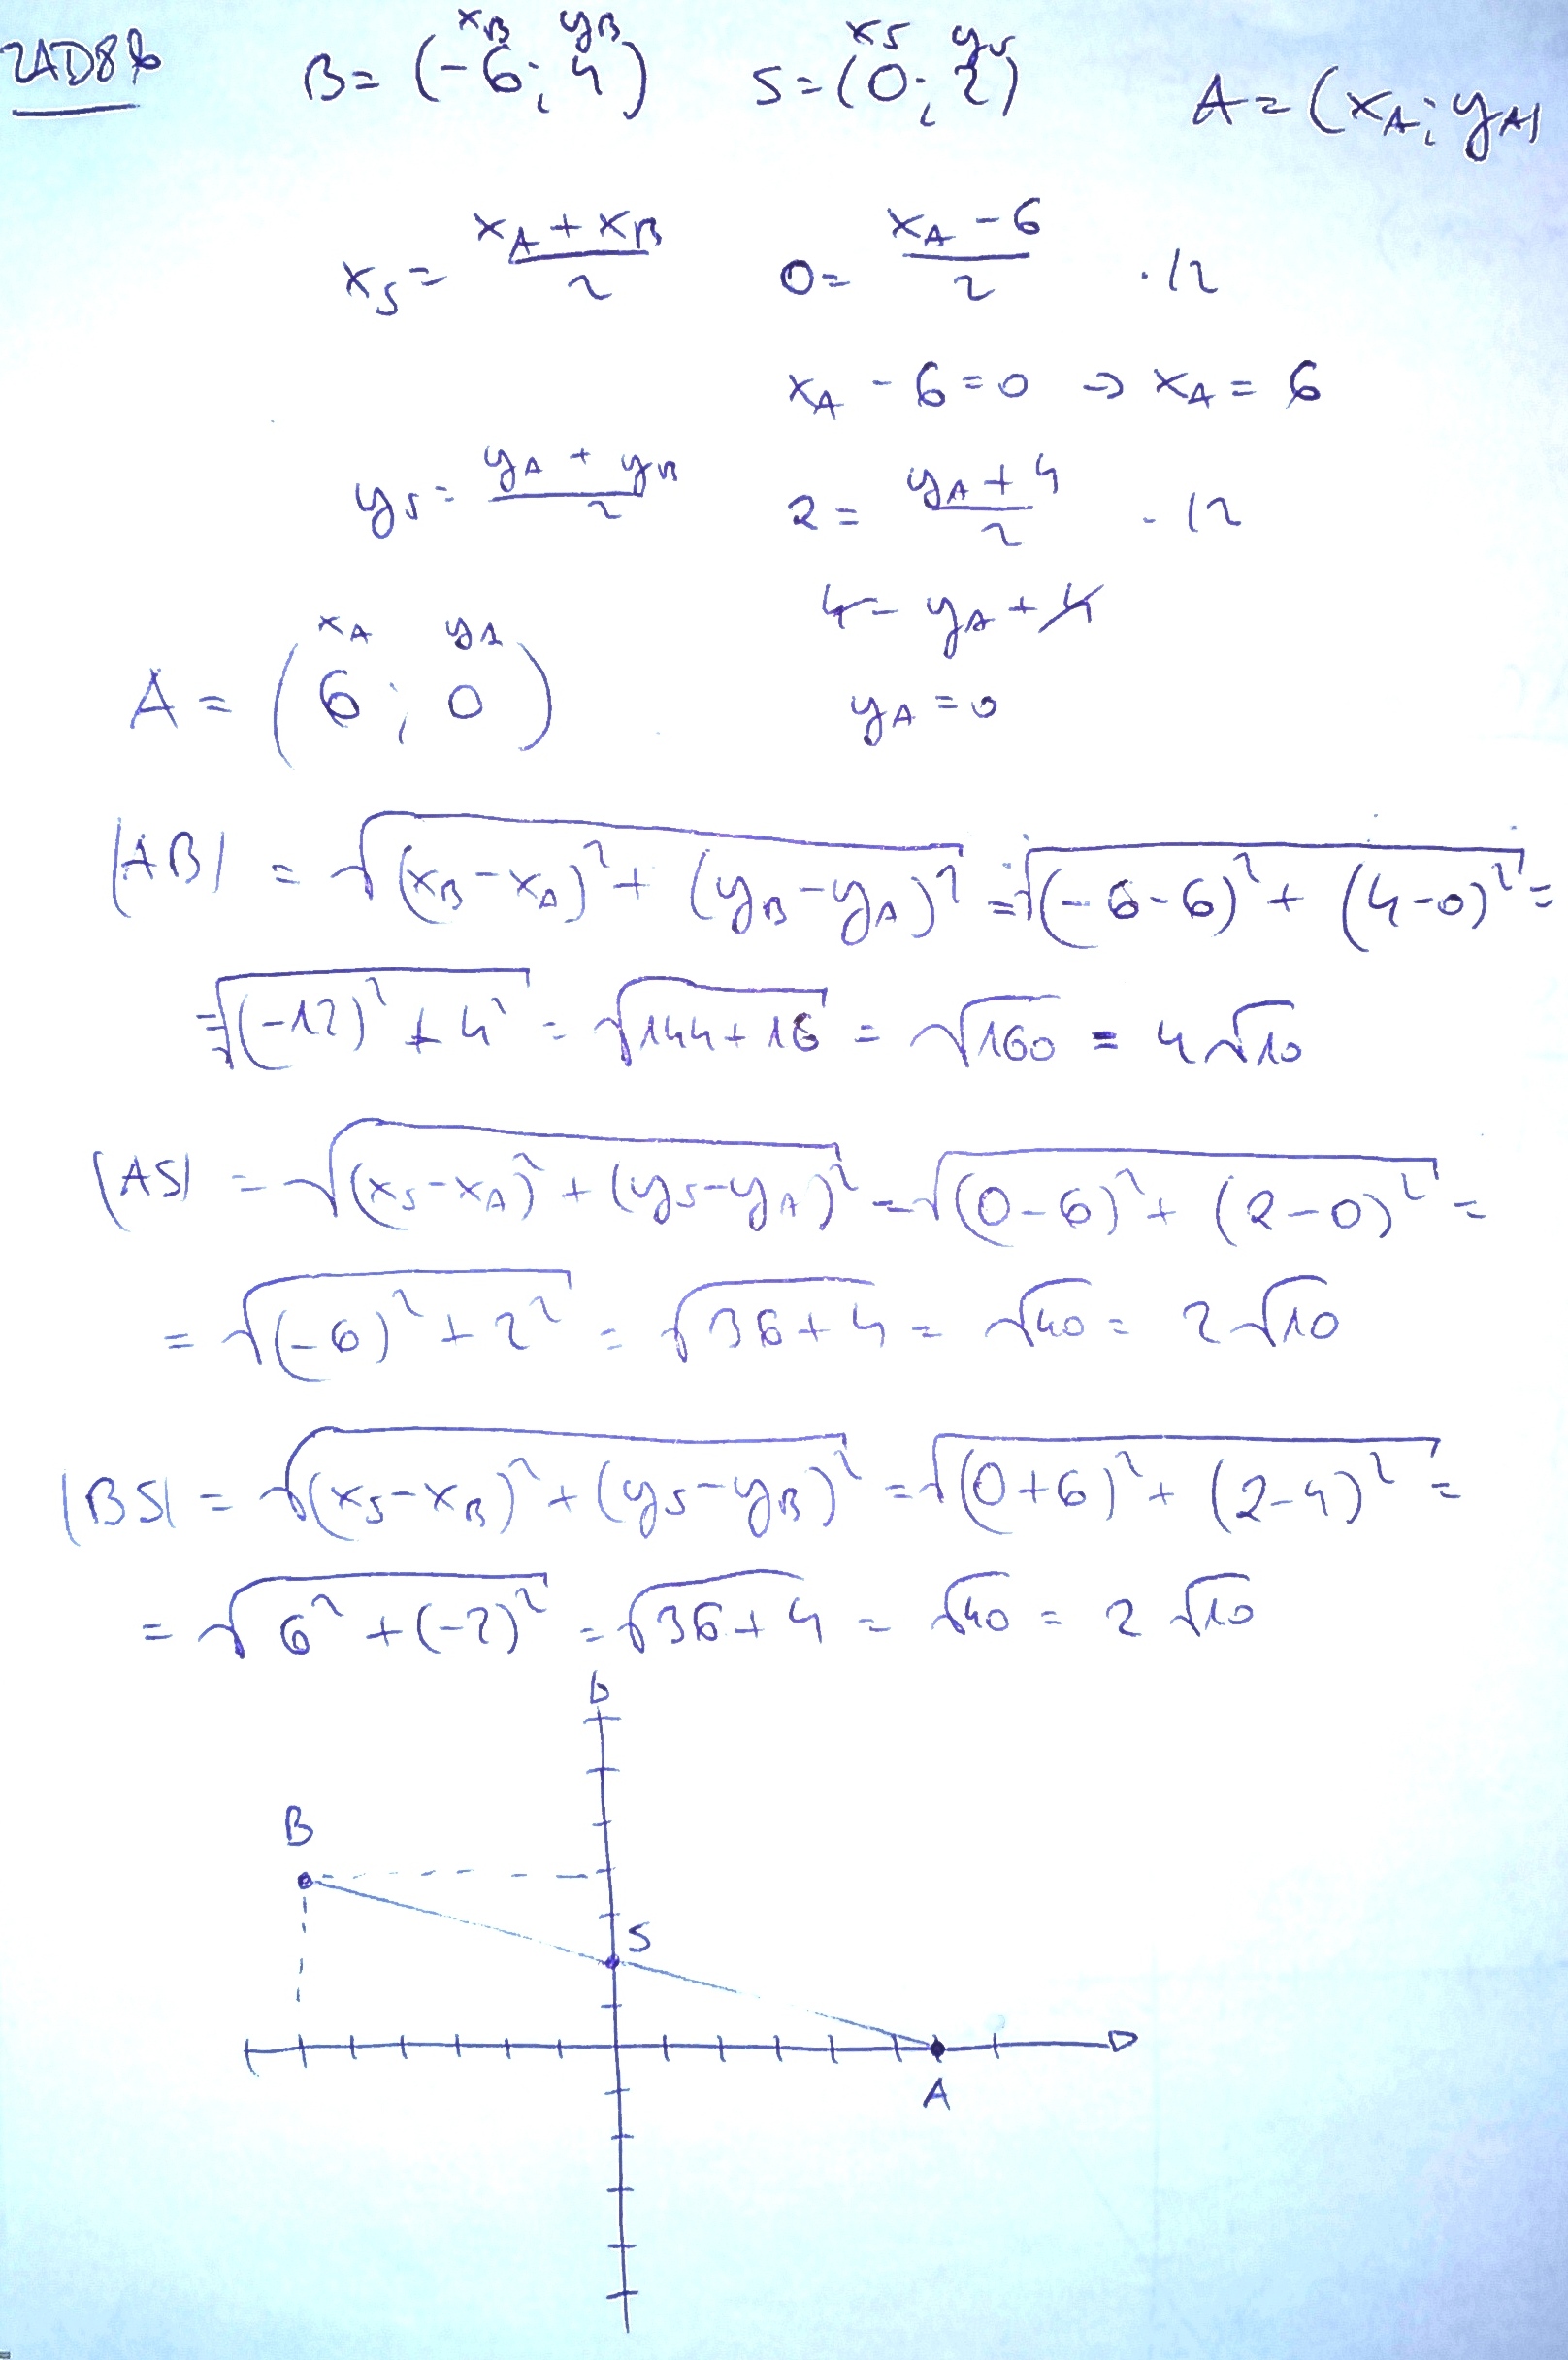 ZAD8b B=(-6; 4) S=(0; 2) A=(x_A; y_A)
x_B y_B x_S y_S
x_S = (x_A + x_B)/2 0 = (x_A - 6)/2 ·/2
x_A - 6 = 0 → x_A = 6
y_S = (y_A + y_B)/2 2 = (y_A + 4)/2 ·/2
4 = y_A + 4
x_A y_A
A = (6; 0) y_A = 0
|AB| = √((x_B-x_A)² + (y_B-y_A)²) = √((-6-6)² + (4-0)²) =
= √((-12)² + 4²) = √(144+16) = √160 = 4√10
|AS| = √((x_S-x_A)² + (y_S-y_A)²) = √((0-6)² + (2-0)²) =
= √((-6)² + 2²) = √(36+4) = √40 = 2√10
|BS| = √((x_S-x_B)² + (y_S-y_B)²) = √((0+6)² + (2-4)²) =
= √(6² + (-2)²) = √(36+4) = √40 = 2√10
B
S
A